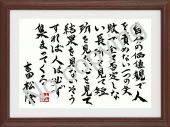 自分の価値観で人
を責めない。一つの失
敗で全て否定しな
い。長所を見て短
所を見ない。心を見て
結果を見ない。そう
すれば人は必ず
集まってくる。
吉田松陰